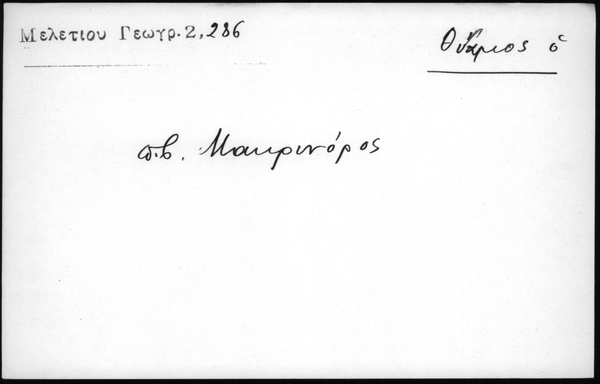 Μελετίου Γεωγρ. 2, 286
Θύαμος ὁ
πβ. Μακρυνόρος